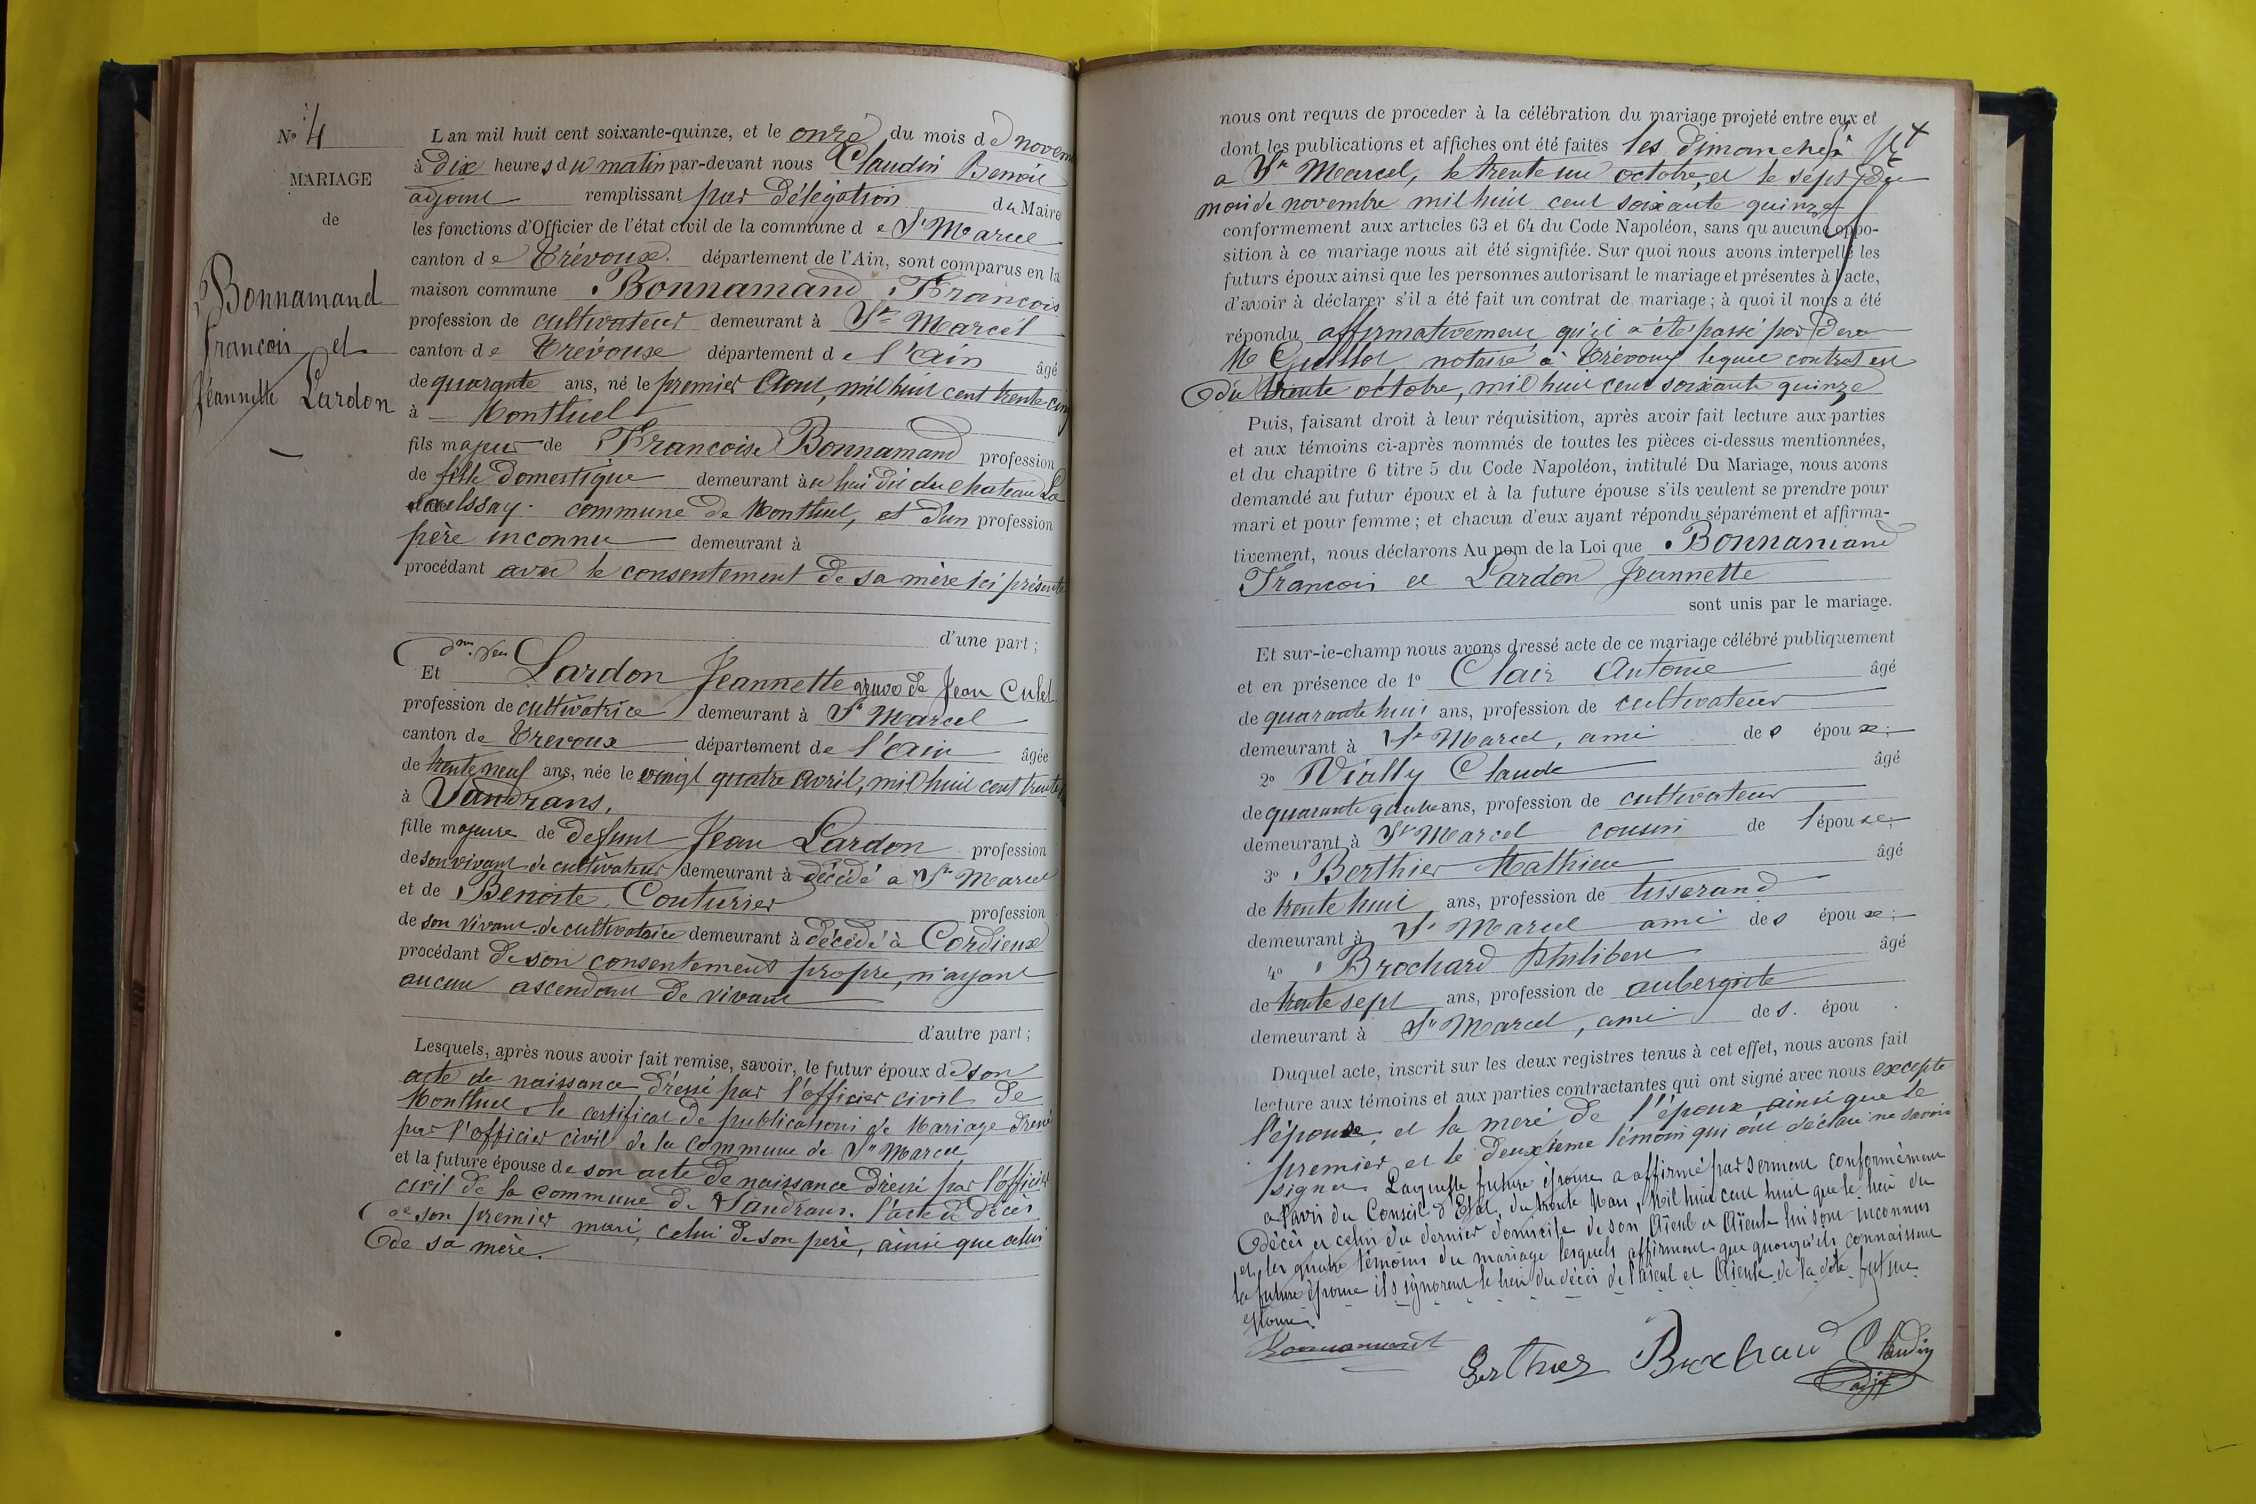 N° 4
MARIAGE
de
Bonnamand
François et
Jeannette Lardon
L'an mil huit cent soixante-quinze, et le onze du mois de novem
à dix heures du matin par-devant nous Claudin Benoit
adjoint remplissant par délégation du Maire
les fonctions d'Officier de l'état civil de la commune de St Marcel
canton de Trévoux. département de l'Ain, sont comparus en la
maison commune Bonnamand François
profession de cultivateur demeurant à St Marcel
canton de Trévoux département de l'ain âgé
de quarante ans, né le premier Aout, mil huit cent trente-cinq
à Montluel
fils majeur de Françoise Bonnamand profession
de fille domestique demeurant à au lieu dit du chateau La
Saulssay. commune de Montluel, et d'un profession
père inconnu demeurant à
procédant avec le consentement de sa mère ici présente
d'une part ;
Et Lardon Jeannette veuve de Jean Culet
profession de cultivatrice demeurant à St Marcel
canton de Trevoux département de l'ain âgée
de trente neuf ans, née le vingt quatre avril, mil huit cent trente
à Vandrans,
fille majeure de defunt Jean Lardon profession
de son vivant de cultivateur demeurant à décédé a St Marcel
et de Benoite Couturier profession
de son vivant de cultivatrice demeurant à décédé à Cordieux
procédant de son consentement propre, n'ayant
aucun ascendant de vivant
d'autre part ;
Lesquels, après nous avoir fait remise, savoir, le futur époux de son
acte de naissance dressé par l'officier civil de
Montluel, le certificat de publications de Mariage dressé
par l'officier civil de la commune de St Marcel
et la future épouse de son acte de naissance dressé par l'officier
civil de la commune de Vandrans. l'acte de décès
de son premier mari, celui de son père, ainsi que celui
de sa mère.
nous ont requis de proceder à la célébration du mariage projeté entre eux et
dont les publications et affiches ont été faites les dimanches
a St Marcel, le trente un octobre, et le sept du
mois de novembre mil huit cent soixante quinze
conformement aux articles 63 et 64 du Code Napoléon, sans qu'aucune oppo-
sition à ce mariage nous ait été signifiée. Sur quoi nous avons interpellé les
futurs époux ainsi que les personnes autorisant le mariage et présentes à l'acte,
d'avoir à déclarer s'il a été fait un contrat de mariage ; à quoi il nous a été
répondu affirmativement, qu'il a été passé par devant
Me notaire à Trévoux lequel contrat est
du trente octobre, mil huit cent soixante quinze
Puis, faisant droit à leur réquisition, après avoir fait lecture aux parties
et aux témoins ci-après nommés de toutes les pièces ci-dessus mentionnées,
et du chapitre 6 titre 5 du Code Napoléon, intitulé Du Mariage, nous avons
demandé au futur époux et à la future épouse s'ils veulent se prendre pour
mari et pour femme ; et chacun d'eux ayant répondu séparément et affirma-
tivement, nous déclarons Au nom de la Loi que Bonnamand
François et Lardon Jeannette
sont unis par le mariage.
Et sur-le-champ nous avons dressé acte de ce mariage célébré publiquement
et en présence de 1° Clair Antoine âgé
de quarante huit ans, profession de cultivateur
demeurant à St Marcel, ami des époux ;
2° Vially Claude âgé
de quarante quatre ans, profession de cultivateur
demeurant à St Marcel cousin de l'épouse
3° Berthier Mathieu âgé
de trente huit ans, profession de tisserand
demeurant à St Marcel ami des époux ;
4° Brochard Philibert âgé
de trente sept ans, profession de aubergiste
demeurant à St Marcel, ami des. épou .
Duquel acte, inscrit sur les deux registres tenus à cet effet, nous avons fait
lecture aux témoins et aux parties contractantes qui ont signé avec nous excepté
l'épouse, et la mère de l'époux ainsi que le
premier et le deuxième témoin qui ont déclaré ne savoir
signer Laquelle future épouse a affirmé par serment conformément
a l'avis du Conseil d'Etat, du trente Mars, Mil huit cent huit que le lieu du
décès et celui du dernier domicile de son Aïeul et Aïeule lui sont inconnus
et les quatre témoins du mariage lesquels affirment que quoiqu'ils connaissent
la future épouse ils ignorent le lieu du décès de l'Aïeul et Aïeule de la dite future
épouse.
Bonnamand
Berthier Brochard Claudin
adjt